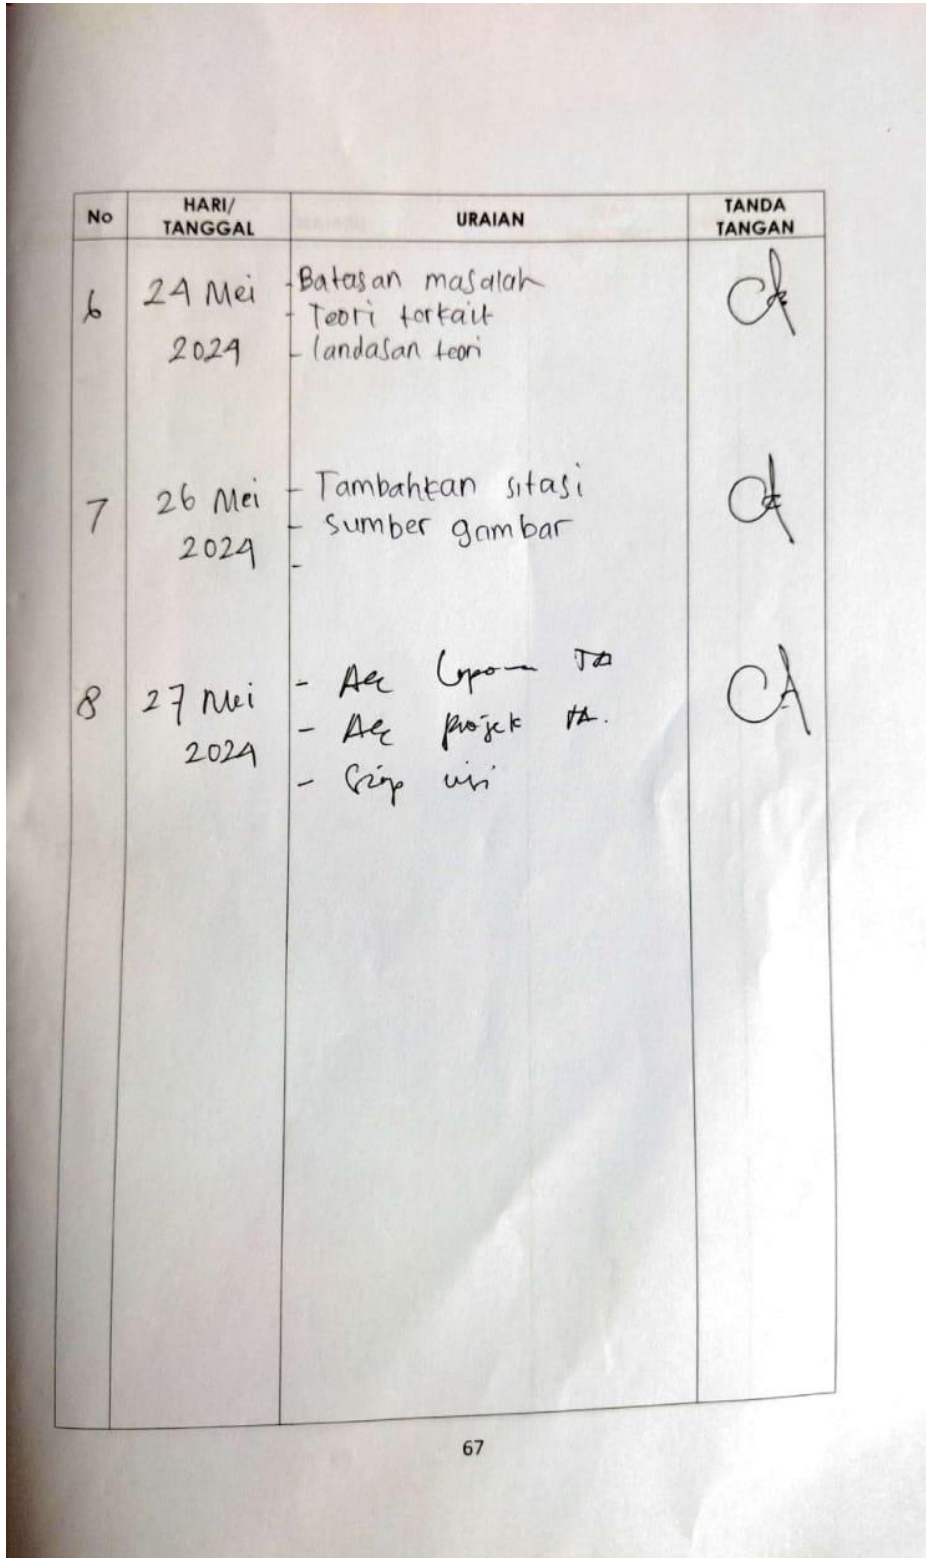 No
HARI/
TANGGAL
URAIAN
TANDA
TANGAN
6
24 Mei
2024
- Batasan masalah
- Teori terkait
- landasan teori
7
26 Mei
2024
- Tambahkan sitasi
- sumber gambar
-
8
27 Mei
2024
- Acc TA
- Acc projek TA.
- Siap
67